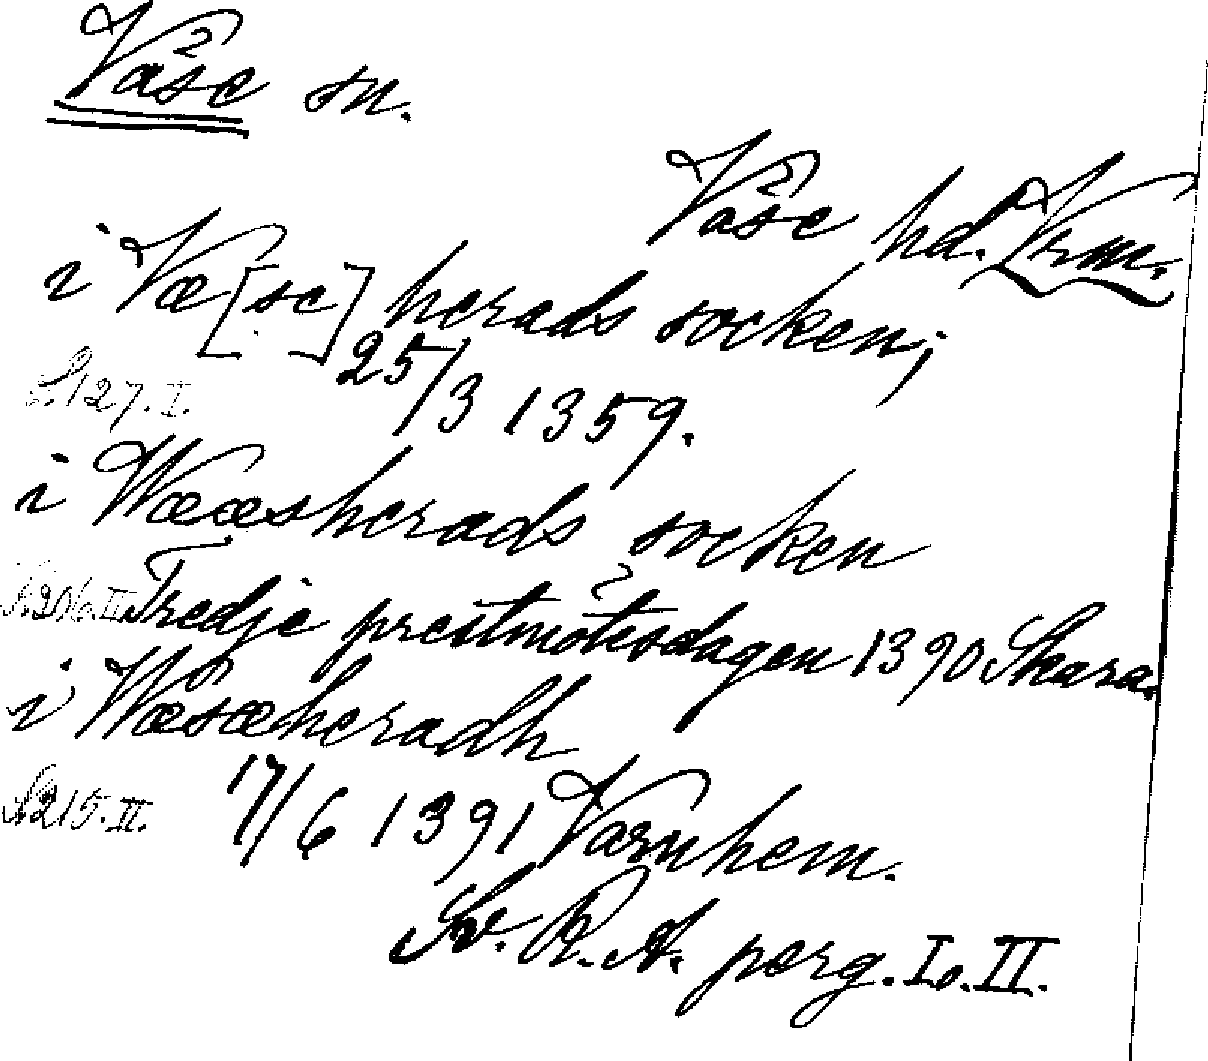 Väse sn.
Väse hd. Vrm.
i Væ[se] herads socken;
25/3 1359.
S. 127. I.
i Wææsherads socken
S. 206. II. Tredje prestmötesdagen 1390 Skara.
i Wæsæheradh
S. 215. II. 17/6 1391 Varnhem.
Sv. R. A. perg. I o. II.